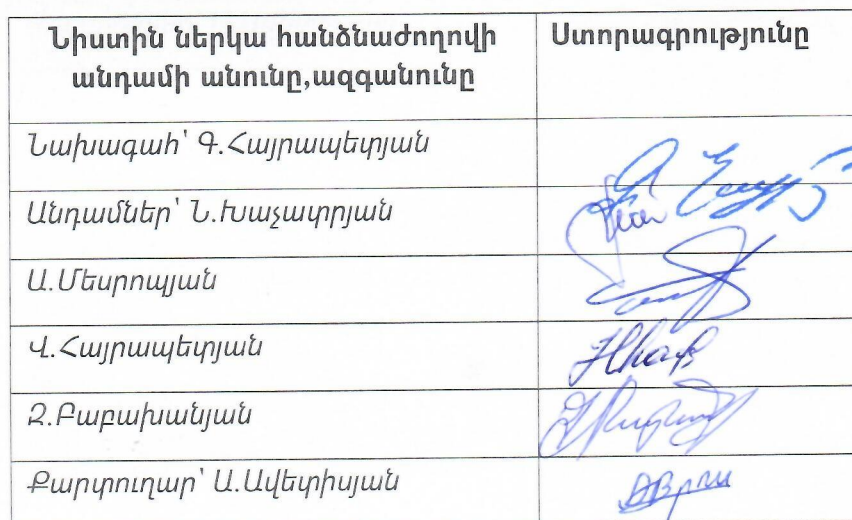 Նիստին ներկա հանձնաժողովի Ստորագրությունը
անդամի անունը,ազգանունը
Նախագահ՝ Գ.Հայրապետյան
Անդամներ՝ Ն.Խաչատրյան
Ա.Մեսրոպյան
Վ.Հայրապետյան
Զ.Բաբախանյան
Քարտուղար՝ Ա.Ավետիսյան